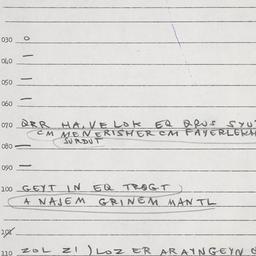 030 o
040 —
050 —
060 —
070 ØRR HA,VE LOK EQ QRUS SYU
CM MENERISHER CM FAYERLEKH
080 — SURDUT
090 —
100 GEYT IN EQ TRØGT
A NAJEM GRINEM MANTL
101
110 ZOL ZI ) LOZ ER ARAYNGEYN